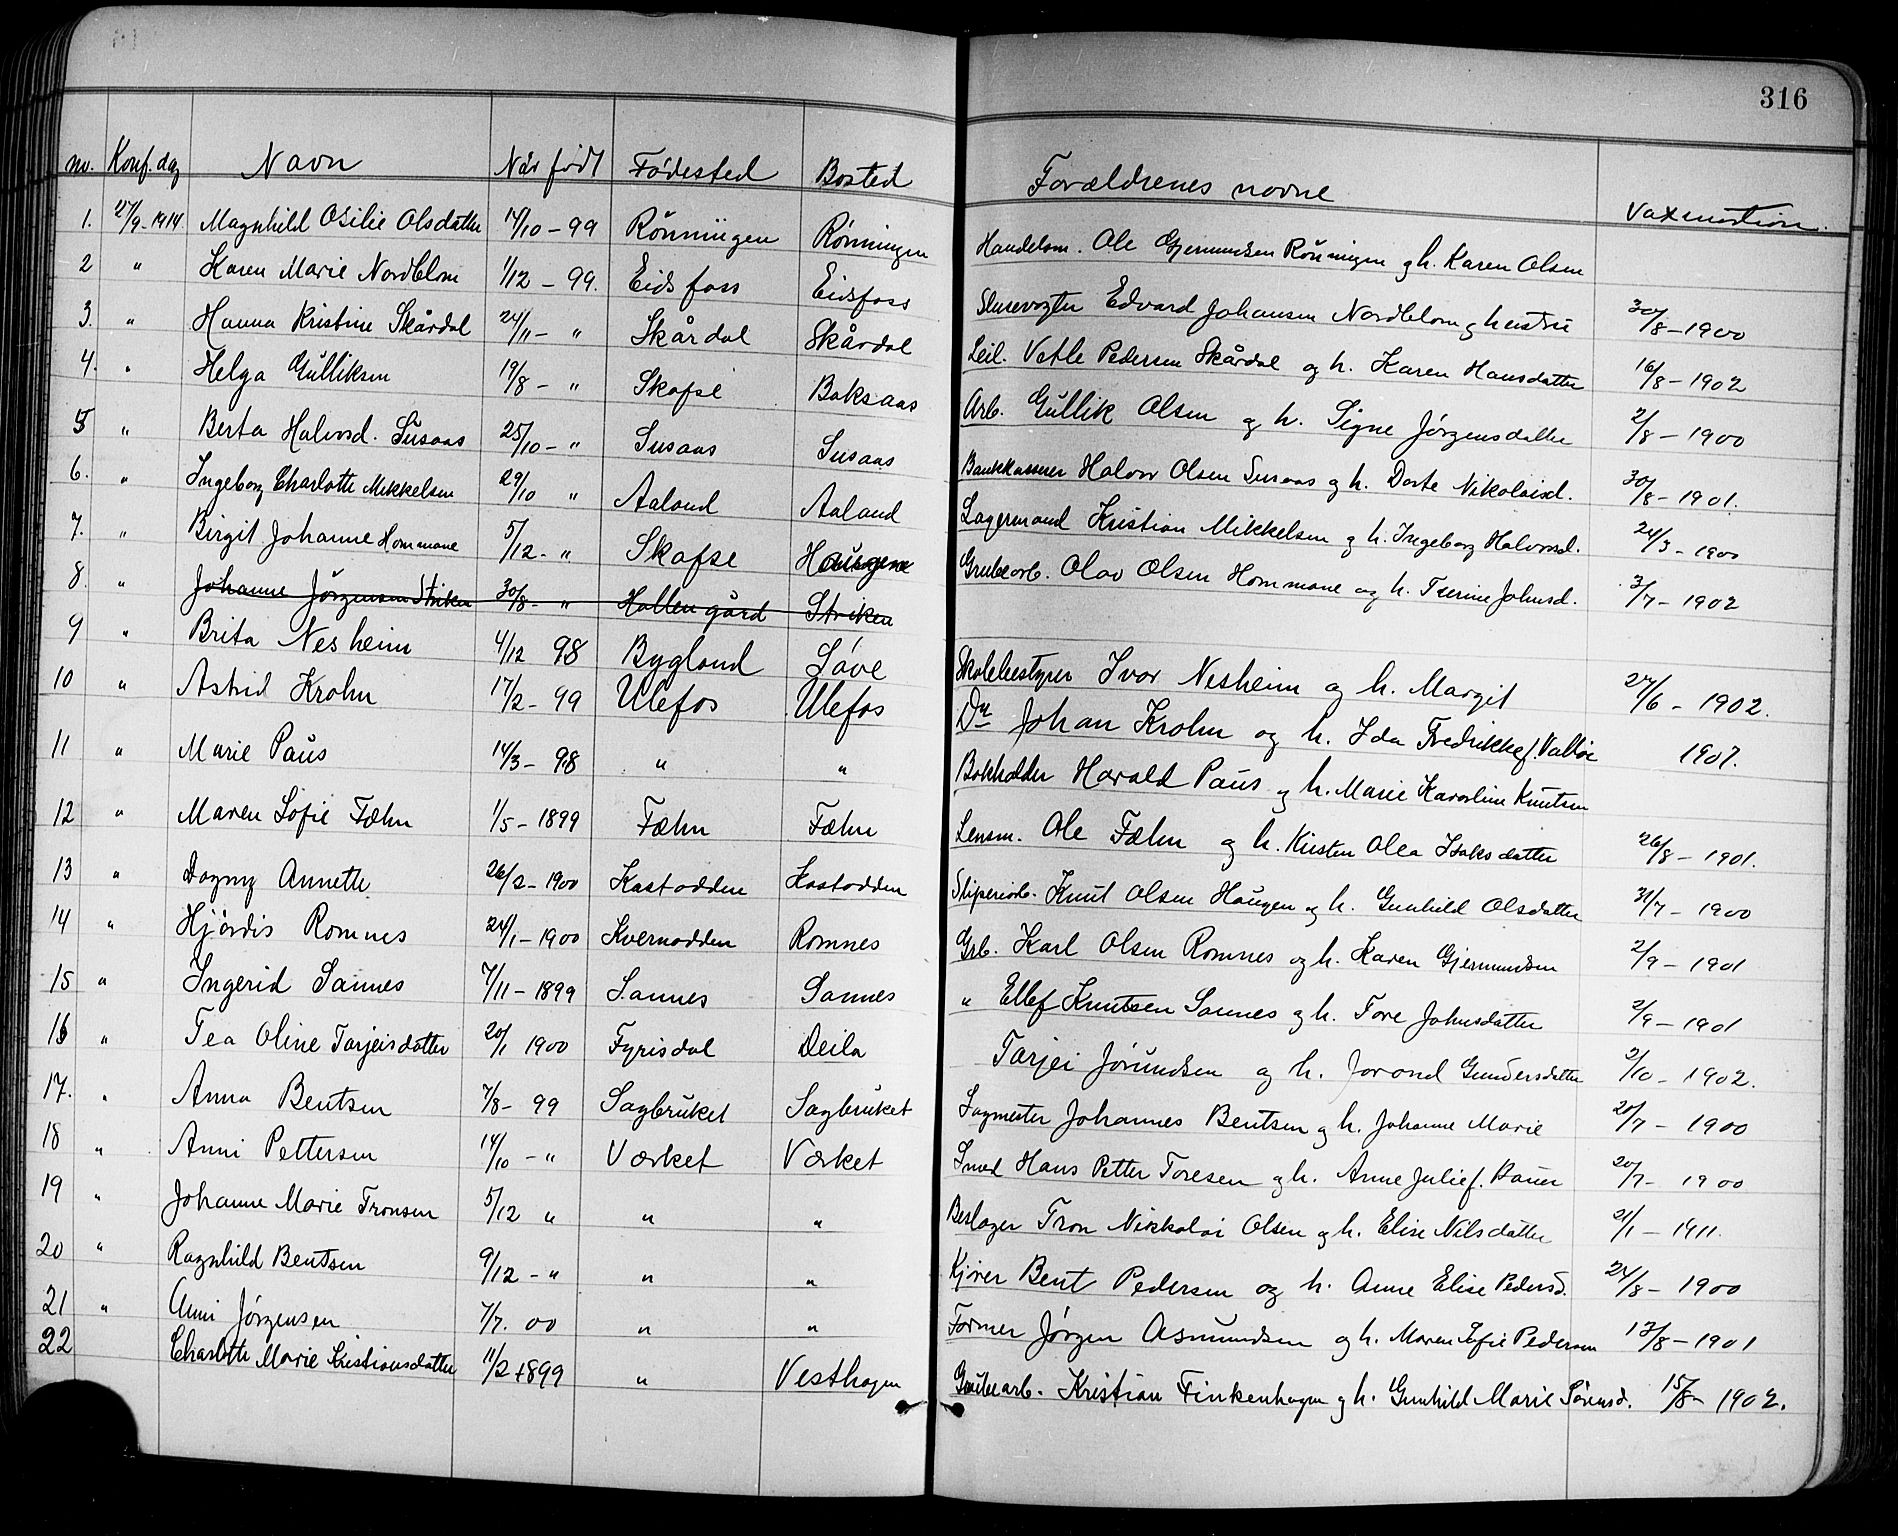 316
no. Konf. dag Navn Når født Fødested Bosted Forældrenes navne Vaxination.
1. 27/9-1914 Magnhild Osilie Olsdatter 14/10-99 Rønningen Rønningen Handelsm. Ole Gjermundsen Rønningen og h. Karen Olsen
2 " Karen Marie Nordblom 1/12-99. Eidsfoss Eidsfoss Slusevogter Edvard Johansen Nordblom og hustru 30/8-1900
3. " Hanna Kristine Skårdal 24/11-" Skårdal Skårdal Leil. Vetle Pedersen Skårdal og h. Karen Hansdatter 16/8-1902
4. " Helga Gulliksen 19/8-" Skafse Baksaas Arb. Gullik Olsen og h. Signe Jørgensdatter 2/8-1900
5 " Berta Halvorsd. Susaas 25/10-" Susaas Susaas Bankkasserer Halvor Olsen Susaas og h. Dorte Nikolaisd. 30/8-1901.
6. " Ingeborg Charlotte Mikkelsen 29/10 " Aaland Aaland Lagermand Kristian Mikkelsen og h. Ingeborg Halvorsd. 24/3-1900
7. " Birgit Johanne Hommane 5/12-" Skafse Haugene Grubearb. Olav Olsen Hommane og h. Terine Johnsd. 3/7-1902
8. " Johanne Jørgensen Striken 30/8-" Hollen gård Striken
9 " Brita Nesheim 4/12 98 Bygland Søve Skolebestyrer Ivar Nesheim og h. Margit 27/6-1902.
10 " Astrid Krohn 17/2-99 Ulefos Ulefos Dr Johan Krohn og h. Ida Fredrikke f. Valløe 1907.
11 " Marie Paus 14/3-98 " " Bokholder Harald Paus og h. Marie Karoline Knutsen
12 " Maren Sofie Fæhn 1/5-1899 Fæhn Fæhn Lensm. Ole Fæhn og h. Kirsten Olea Isaksdatter 26/8-1901.
13 " Dagny Annette 26/2-1900 Kastodden Kastodden Sliperiarb. Knut Olsen Haugen og h. Gunhild Olsdatter 31/7-1900
14 " Hjørdis Romnes 24/1-1900 Kvernodden Romnes Grb. Karl Olsen Romnes og h. Karen Gjermundsen 2/9-1901
15 " Ingerid Sannes 7/11-1899 Sannes Sannes " Ellef Knutsen Sannes og h. Tore Johnsdatter 2/9-1901
16 " Tea Oline Tarjeisdatter 20/1 1900 Fyrisdal Deila Tarjei Jørundsen og h. Jorand Gundersdatter 2/10-1902.
17. " Anna Bentsen 7/8-99 Sagbruket Sagbruket Sagmester Johannes Bentsen og h. Johanne Marie 20/7-1900
18 " Anni Pettersen 14/10-" Værket Værket Smed Hans Petter Toresen og h. Anne Julie f. 20/7-1900
19 " Johanne Marie Tronsen 5/12 " " " Beslager Tron Nikkolai Olsen og h. Elise Nilsdatter 21/1-1911.
20 " Ragnhild Bentsen 9/12-" " " Kjører Bent Pedersen og h. Anne Elise Pedersd. 24/8-1900
21 " Anni Jørgensen 7/7. 00 " " Former Jørgen Asmundsen og h. Maren Sofie Pedersen 17/8-1901
22 Charlotte Marie Kristiansdatter 11/2 1899 " Vesthagen Grubearb. Kristian Finkenhagen og h. Gunhild Marie Sørensd. 15/8-1902.